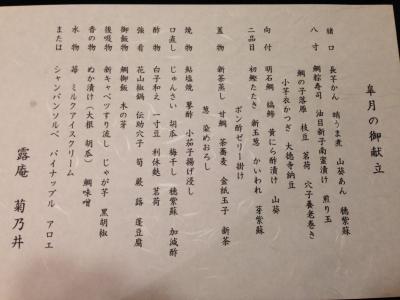 皐月の御献立
猪口 長芋かん 鳴うま煮 山葵あん 穂紫蘇
八寸 鯛粽寿司 油目新子南蛮漬け 煎り玉
鯛の子落雁 枝豆 茗荷 穴子養老巻き
小芋衣かつぎ 大徳寺納豆
向付 明石鯛 縞鯵 黄にら酢漬け 山葵
二品目 初鰹たたき 新玉葱 かいわれ 芽紫蘇
ポン酢ゼリー掛け
蓋物 新茶蒸し 甘鯛 茶蕎麦 金紙玉子 新茶
葱 染めおろし
焼物 鮎塩焼 蓼酢 小茄子揚げ浸し
口直し じゅんさい 胡瓜 梅干し 穂紫蘇 加減酢
酢物 白子和え 一寸豆 利休麩 茗荷
強肴 花山椒鍋 伝助穴子 筍 蕨 蕗 蓬豆腐
御飯物 鯛御飯 木の芽
後吸物 新キャベツすり流し じゃが芋 黒胡椒
香の物 ぬか漬け(大根 胡瓜) 鯛味噌
水物 苺 ミルクアイスクリーム
または シャンパンソルベ パイナップル アロエ
露庵 菊乃井